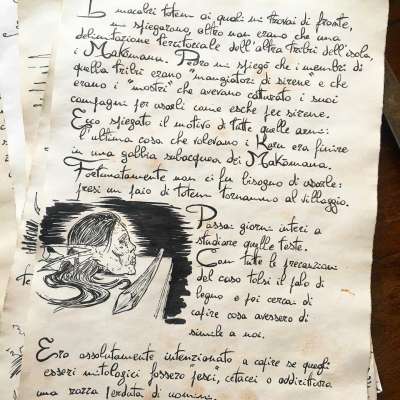 I macabri totem ai quali mi trovai di fronte,
mi spiegarono, altro non erano che una
delimitazione territoriale dell'altra tribù dell'isola,
i Makémana. Pedro mi spiegò che i membri di
quella tribù erano "mangiatori di sirene" e che
erano i "mostri" che avevano catturato i suoi
compagni per usarli come esche per sirene.
Ecco spiegato il motivo di tutte quelle armi:
l'ultima cosa che volevano i Karu era finire
in una gabbia subacquea dei Makémana.
Fortunatamente non ci fu bisogno di usarle:
presi un paio di totem tornammo al villaggio.
Passai giorni interi a
studiare quelle teste.
Con tutte le precauzioni
del caso tolsi il palo di
legno e poi cercai di
capire cosa avessero di
simile a noi.
Ero assolutamente intenzionato a capire se quegli
esseri mitologici fossero "pesci", cetacei o addirittura
una razza perduta di uomini.